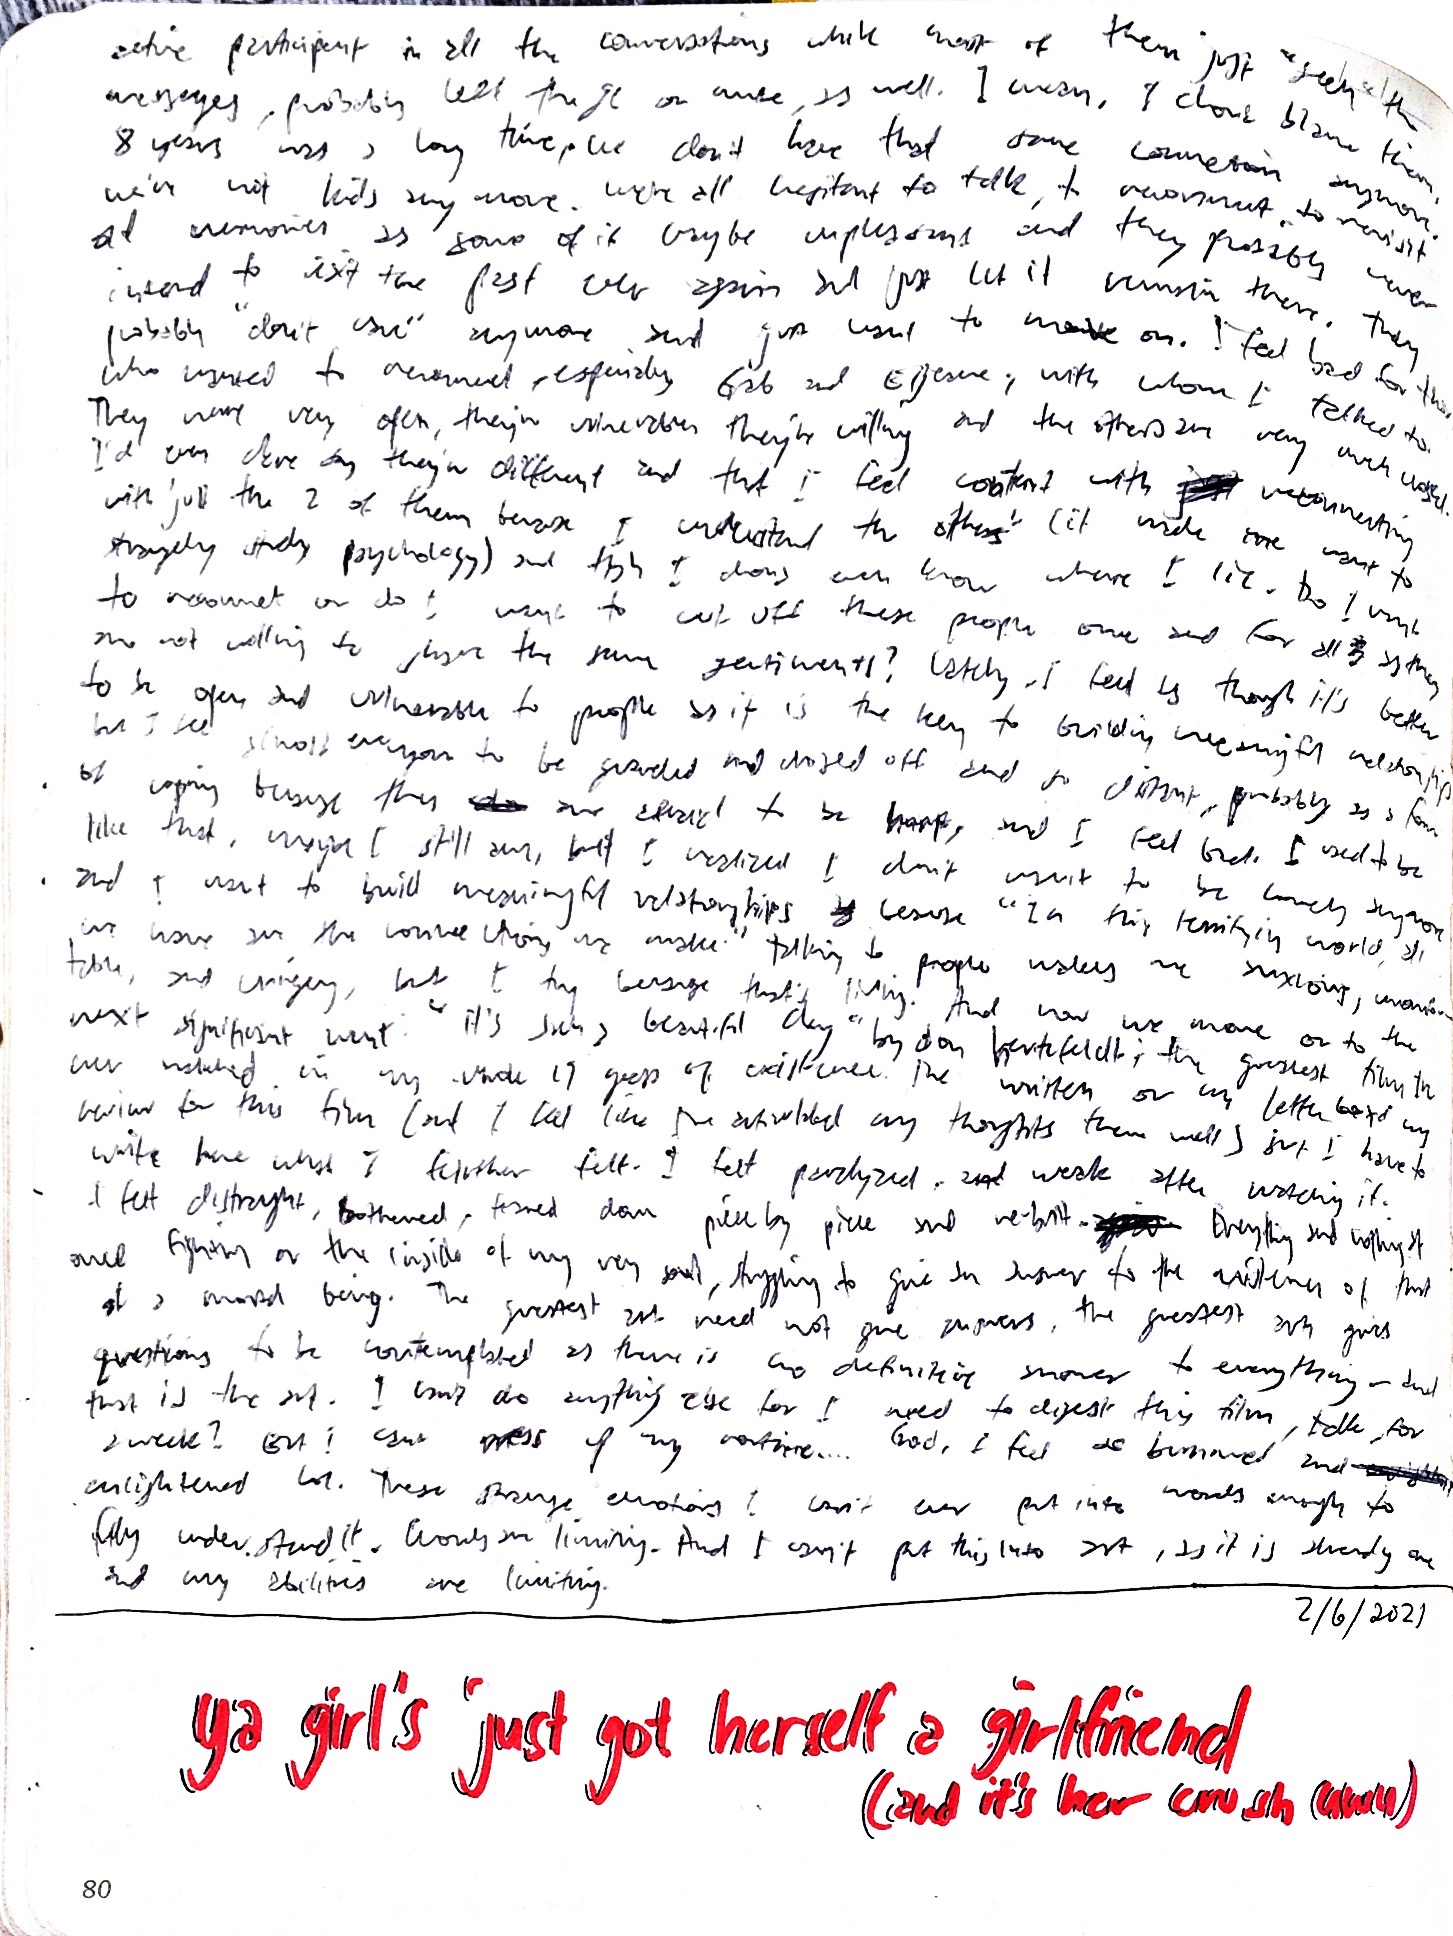 active participant in all the conversations while most of them just "seen" all the
messages, probably left the gc on mute, as well. I mean, I don't blame them.
8 years was a long time, we don't have that same connection anymore.
we're not kids anymore. we're all hesitant to talk, to reconnect, to revisit
old memories as some of it maybe unpleasant and they possibly never
intend to visit the past ever again and just let it remain there. They
probably "don't care" anymore and just want to move on. I feel bad for those
who wanted to reconnect, especially Gab and, with whom I talked to.
They were very open, they're vulnerable, they're willing and the others are very much closed.
I'd even dare say they're different and that I feel content with reconnecting
with just the 2 of them because I understand the others' (it made me want to
strangely study psychology) and tbh I don't even know where I lie. Do I want
to reconnect or do I want to cut off these people once and for all as they
are not willing to share the same sentiments? Lately, I feel as though it's better
to be open and vulnerable to people as it is the key to building meaningful relationships
but I see almost everyone to be guarded and closed off and so distant, probably as a form
of coping because they are afraid to be hurt, and I feel bad. I used to be
like that, maybe I still am, but I realized I don't want to be lonely anymore
and I want to build meaningful relationships because "In this terrifying world, all
we have are the connections we make." Talking to people makes me anxious,
and cringey, but I try because that's living. And now we move on to the
next significant event: "it's such a beautiful day" by don hertzfeldt; the greatest film I've
ever watched in my whole 19 years of existence. I've written on my letterboxd my
review for this film (and I feel like I've articulated my thoughts there well) but I have to
write here what I further felt. I felt paralyzed and weak after watching it.
I felt distraught, bothered, teared down piece by piece and re-built. Everything and nothing at
once fighting on the inside of my very soul, struggling to give an answer to the existence of that
of a mortal being. The greatest art need not give answers, the greatest art gives
questions to be contemplated as there is no definitive answer to everything — and
that is the art. I can't do anything else for I need to digest this film, idk, for
a week? But I can't mess up my routine.... God, I feel so burdened and
enlightened lol. These strange emotions I can't ever put into words enough to
fully understand it. Words are limiting. And I can't put this into art, as it is already one
and my abilities are limiting.
2/6/2021
ya girl's just got herself a girlfriend
(and it's her crush uwu)
80